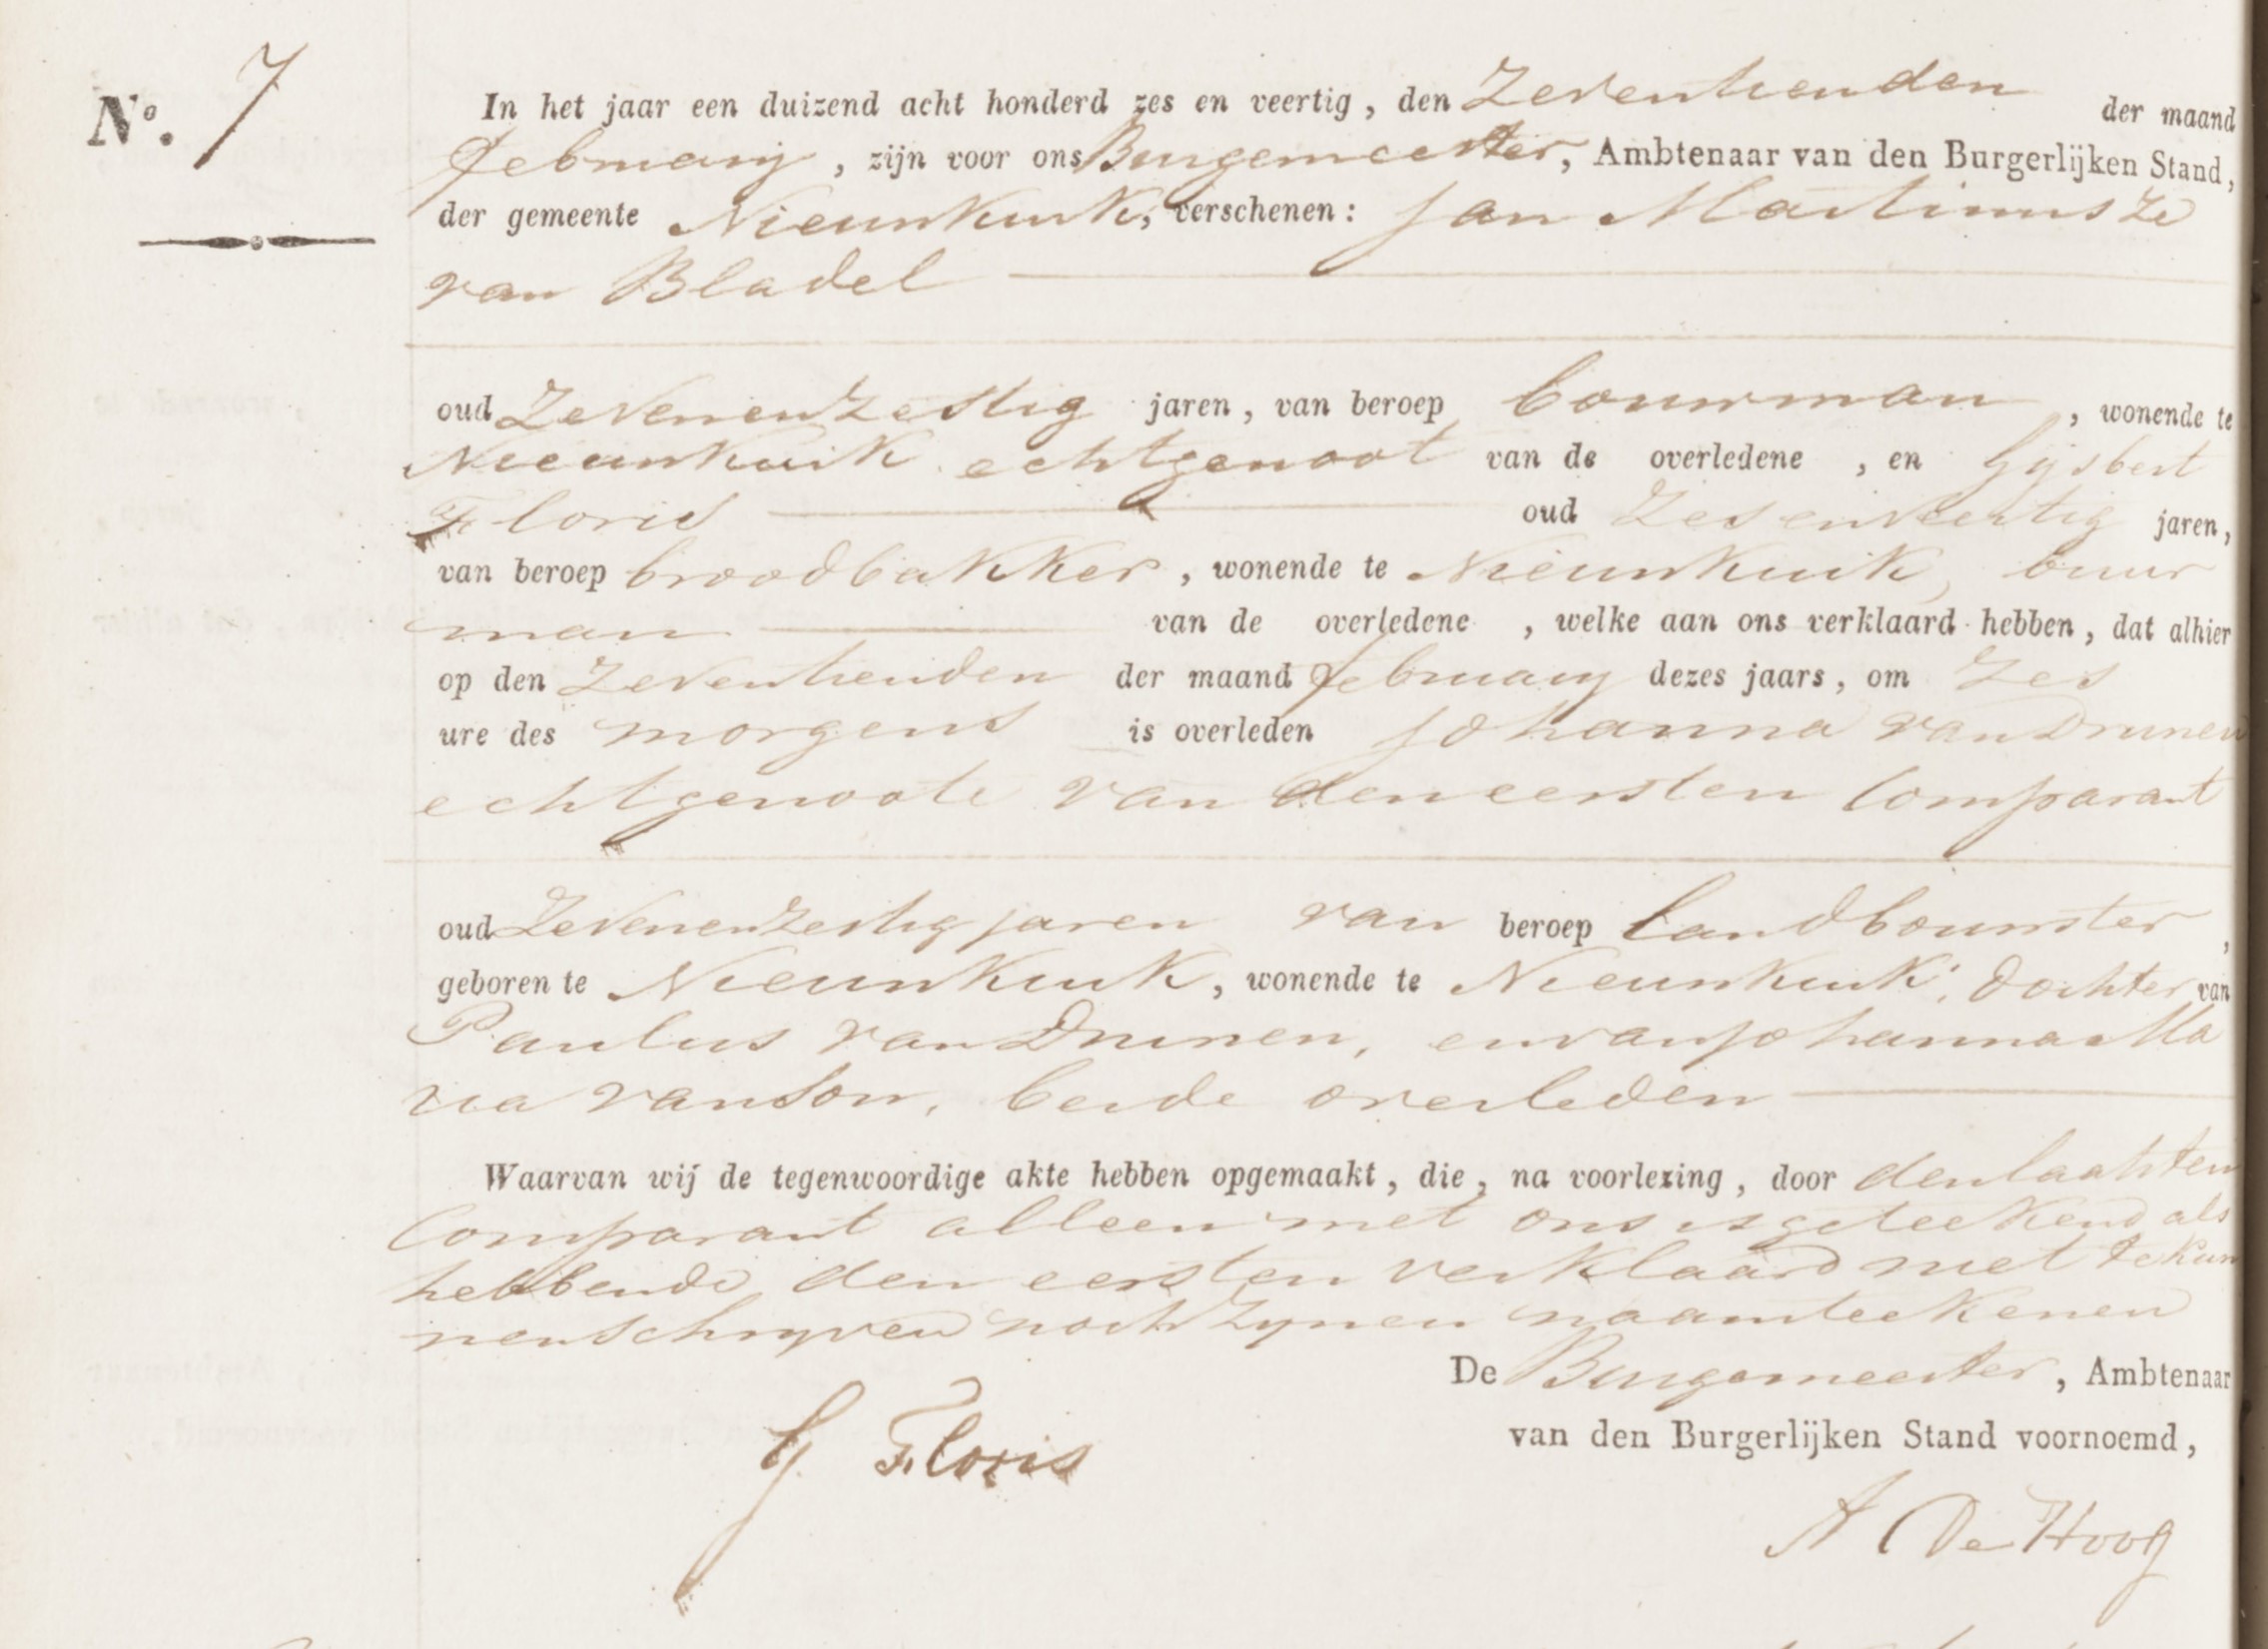 No. 7
In het jaar een duizend acht honderd zes en veertig, den Zeventienden der maand
february, zijn voor ons Burgemeester, Ambtenaar van den Burgerlijken Stand,
der gemeente Nieuwkuik, verschenen: Jan Martinusze
van Bladel
oud Zevenenzestig jaren, van beroep bouwman, wonende te
Nieuwkuik echtgenoot van de overledene, en Gijsbert
Floris oud Zesenveertig jaren,
van beroep broodbakker, wonende te Nieuwkuik, buur
man van de overledene, welke aan ons verklaard hebben, dat alhier
op den Zeventienden der maand february dezes jaars, om Zes
ure des morgens is overleden Johanna van Drunen
echtgenoote van den eersten Comparant
oud Zevenenzestig jaren van beroep landbouwster,
geboren te Nieuwkuik, wonende te Nieuwkuik; dochter van
Paulus van Drunen, en van Johanna Ma
ria van Son, beide overleden
Waarvan wij de tegenwoordige akte hebben opgemaakt, die, na voorlezing, door den laatsten
Comparant alleen met ons is geteekend als
hebbende den eersten verklaard niet te kun
nen schryven noch zynen naamteekenen
De Burgemeester, Ambtenaar
van den Burgerlijken Stand voornoemd,
G Floris
A De Hoog